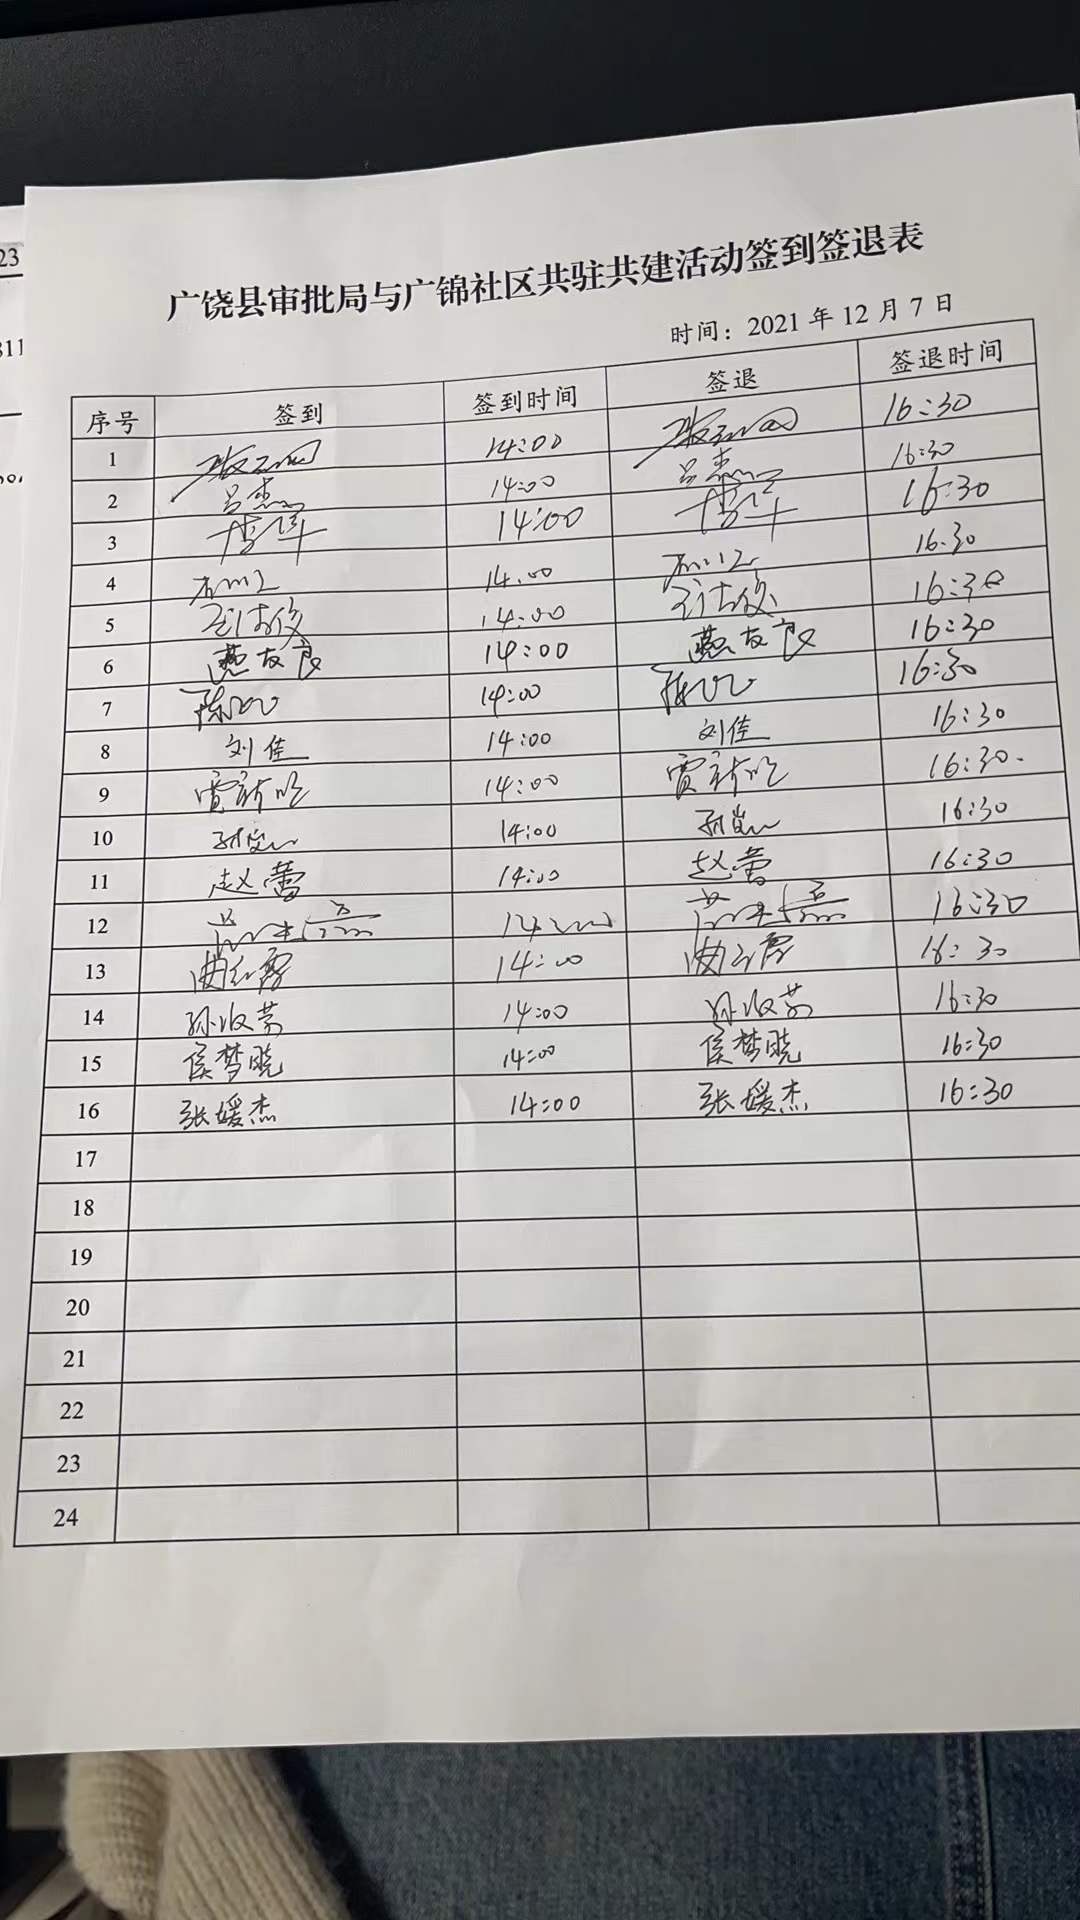 23
311
广饶县审批局与广锦社区共驻共建活动签到签退表
时间：2021 年 12 月 7 日
序号 签到 签到时间 签退 签退时间
1 14:00 16:30
2 14:00 16:30
3 14:00 16:30
4 14.00 16.30
5 14:00 16:30
6 燕友良 14:00 燕友良 16:30
7 14:00 16:30
8 刘佳 14:00 刘佳 16:30
9 14:00 16:30.
10 14:00 16:30
11 赵蕾 14:00 赵蕾 16:30
12 16:30
13 14:00 16:30
14 14:00 16:30
15 侯梦晓 14:00 侯梦晓 16:30
16 张媛杰 14:00 张媛杰 16:30
17
18
19
20
21
22
23
24